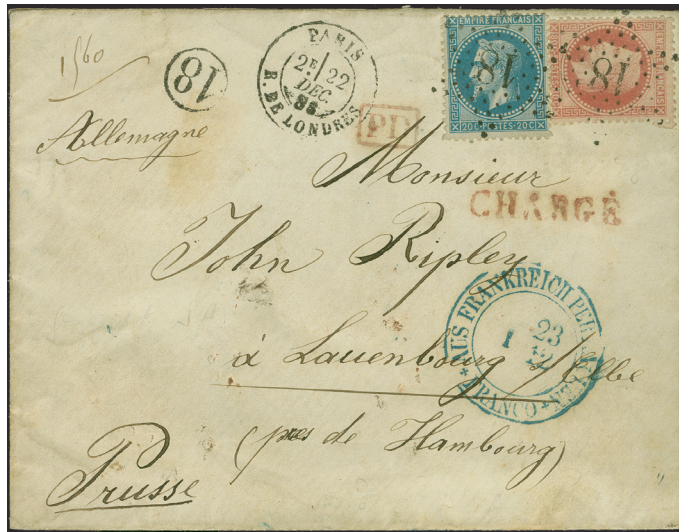 1560
18
PARIS
2E 22
DEC.
R. DE LONDRES
EMPIRE FRANÇAIS
20 C POSTES 20 C
18
18
PD
Allemagne
Monsieur
CHARGÉ
John Ripley
AUS FRANKREICH PER AACHEN
FRANCO
I 23
12
à Lauenbourg s/Elbe
(près de Hambourg)
Prusse